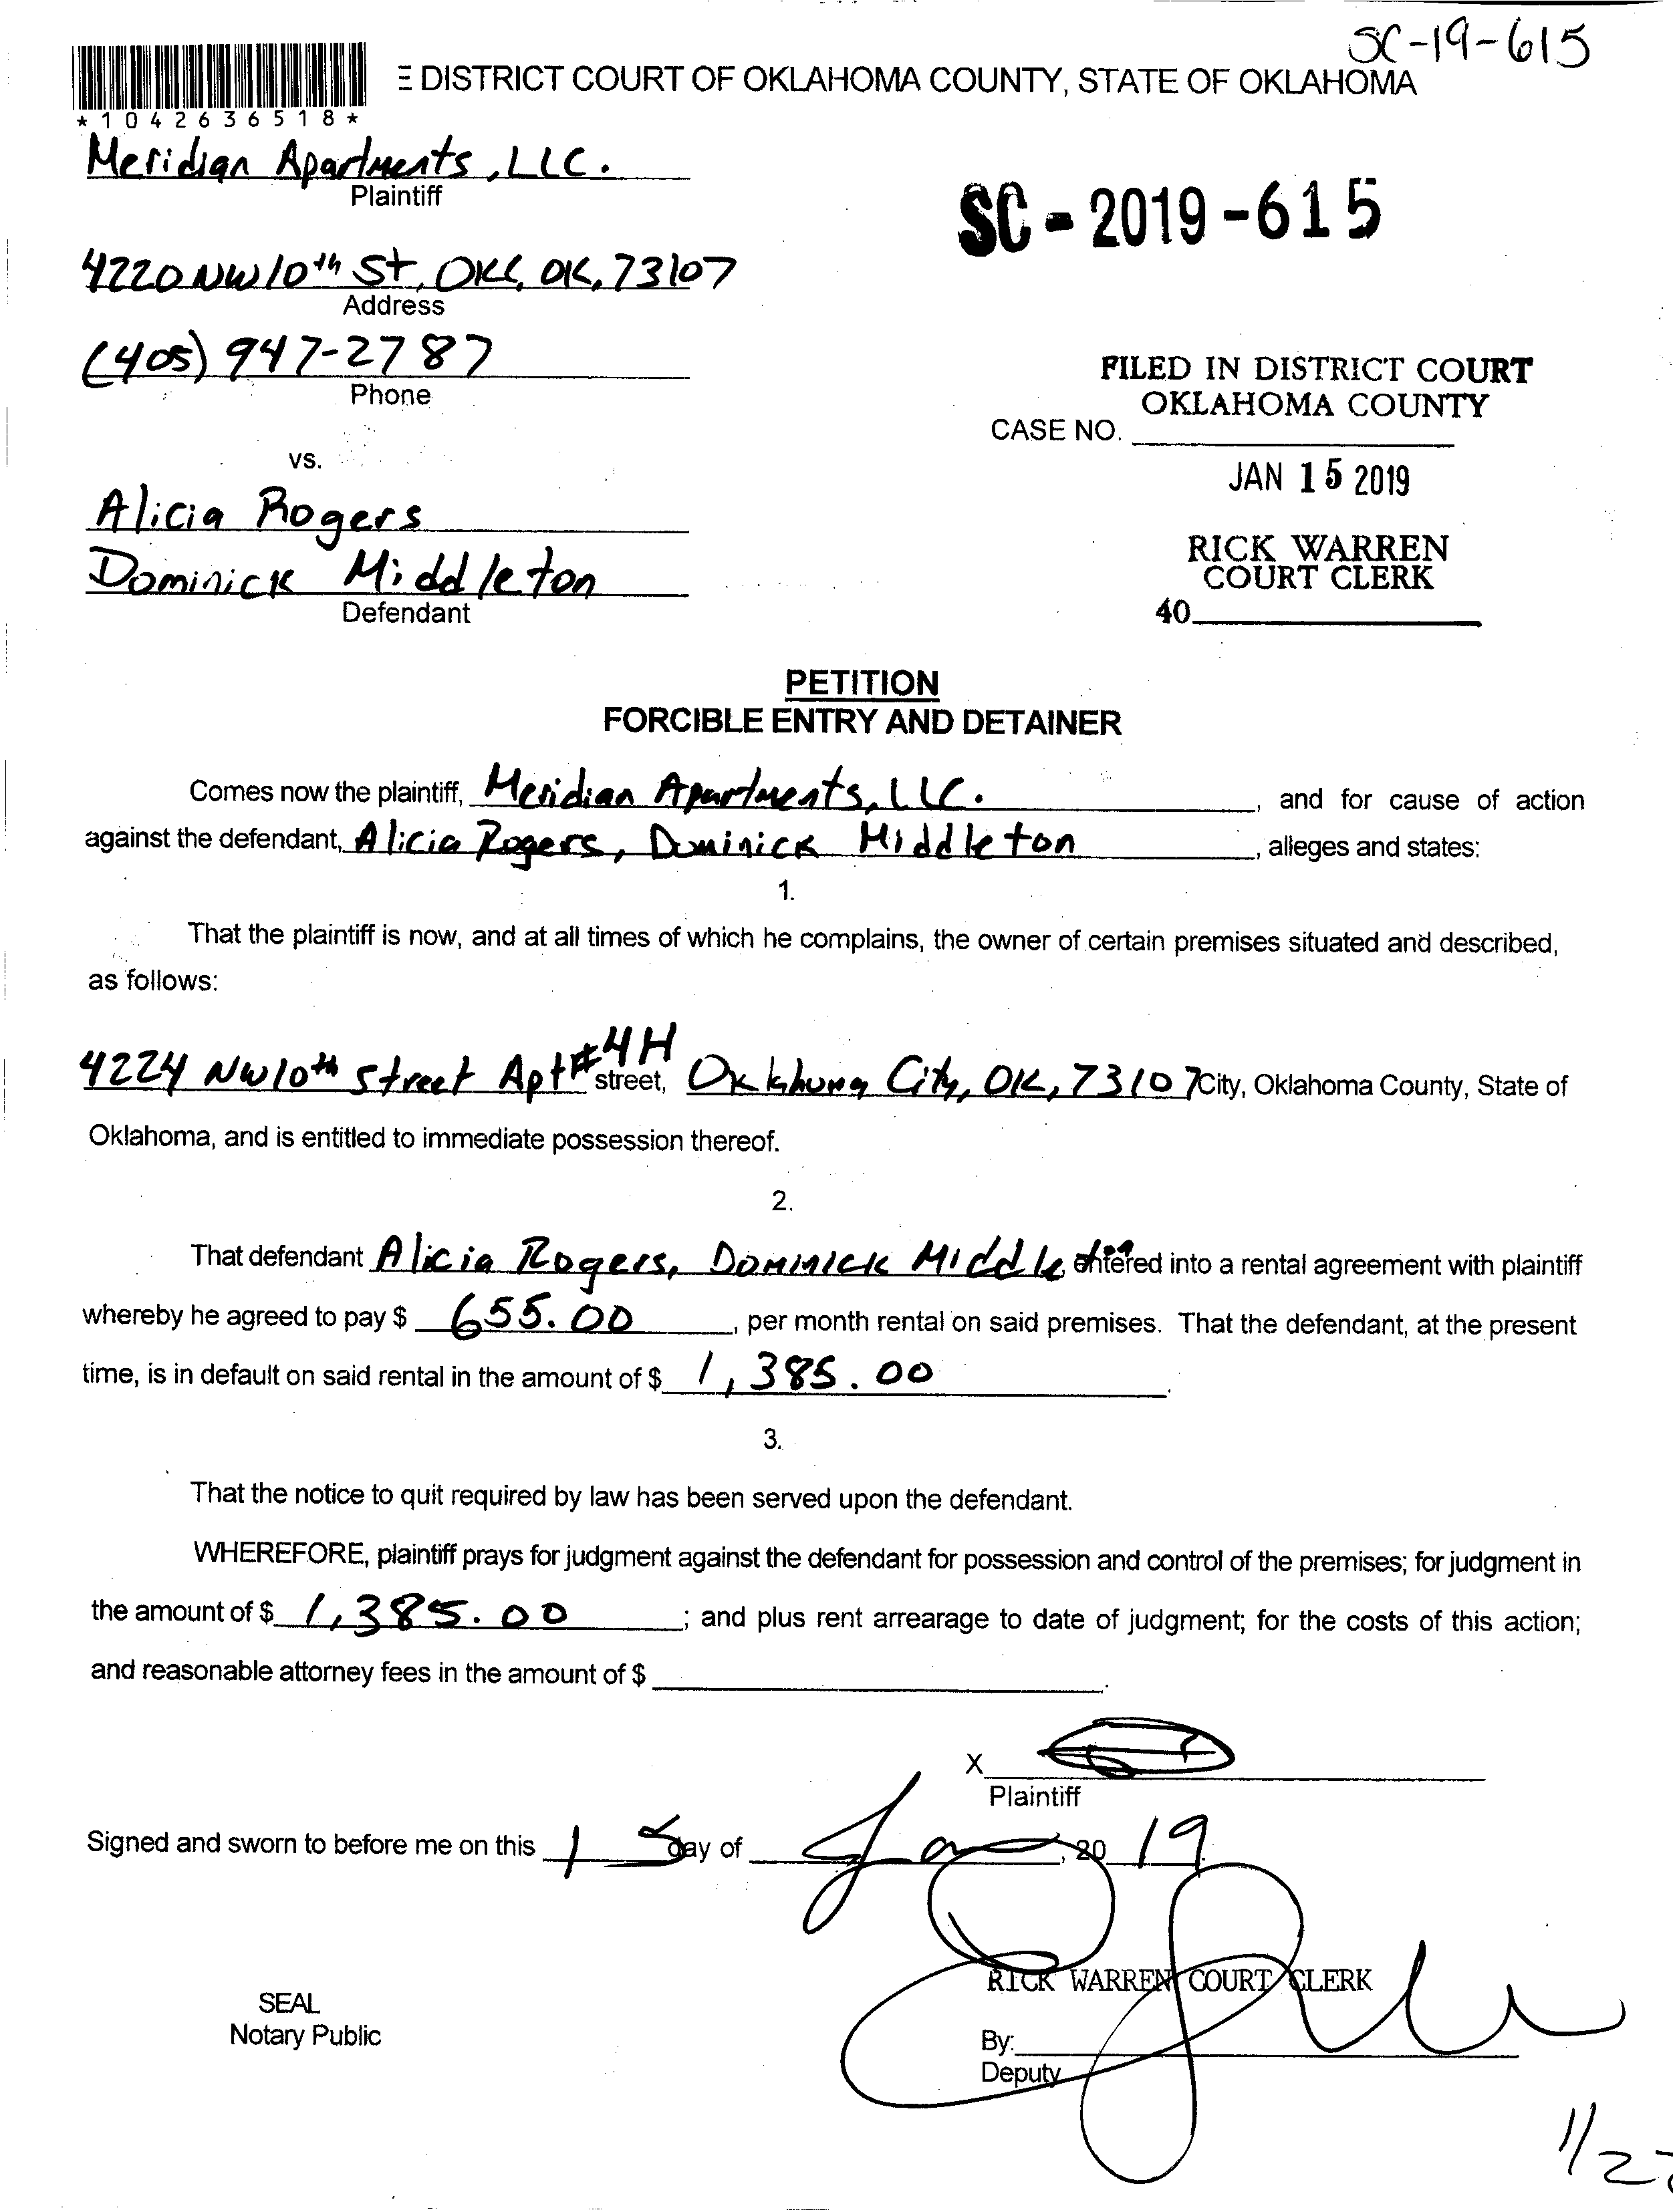 SC-19-615
E DISTRICT COURT OF OKLAHOMA COUNTY, STATE OF OKLAHOMA
* 1 0 4 2 6 3 6 5 1 8 *
Meridian Apartments, LLC.
Plaintiff
SC - 2019 - 615
4220 NW 10th St, OKC, OK, 73107
Address
(405) 947-2787
Phone
FILED IN DISTRICT COURT
OKLAHOMA COUNTY
CASE NO.
vs.
JAN 15 2019
Alicia Rogers
Dominick Middleton
Defendant
RICK WARREN
COURT CLERK
40
PETITION
FORCIBLE ENTRY AND DETAINER
Comes now the plaintiff, Meridian Apartments, LLC. , and for cause of action
against the defendant, Alicia Rogers, Dominick Middleton , alleges and states:
1.
That the plaintiff is now, and at all times of which he complains, the owner of certain premises situated and described,
as follows:
4224 NW 10th street Apt #4H street, Oklahoma City, OK, 73107 City, Oklahoma County, State of
Oklahoma, and is entitled to immediate possession thereof.
2.
That defendant Alicia Rogers, Dominick Middleton entered into a rental agreement with plaintiff
whereby he agreed to pay $ 655.00 , per month rental on said premises. That the defendant, at the present
time, is in default on said rental in the amount of $ 1,385.00 .
3.
That the notice to quit required by law has been served upon the defendant.
WHEREFORE, plaintiff prays for judgment against the defendant for possession and control of the premises; for judgment in
the amount of $ 1,385.00 ; and plus rent arrearage to date of judgment; for the costs of this action;
and reasonable attorney fees in the amount of $ .
X
Plaintiff
Signed and sworn to before me on this 15 day of Jan , 20 19.
RICK WARREN COURT CLERK
SEAL
Notary Public
By:
Deputy